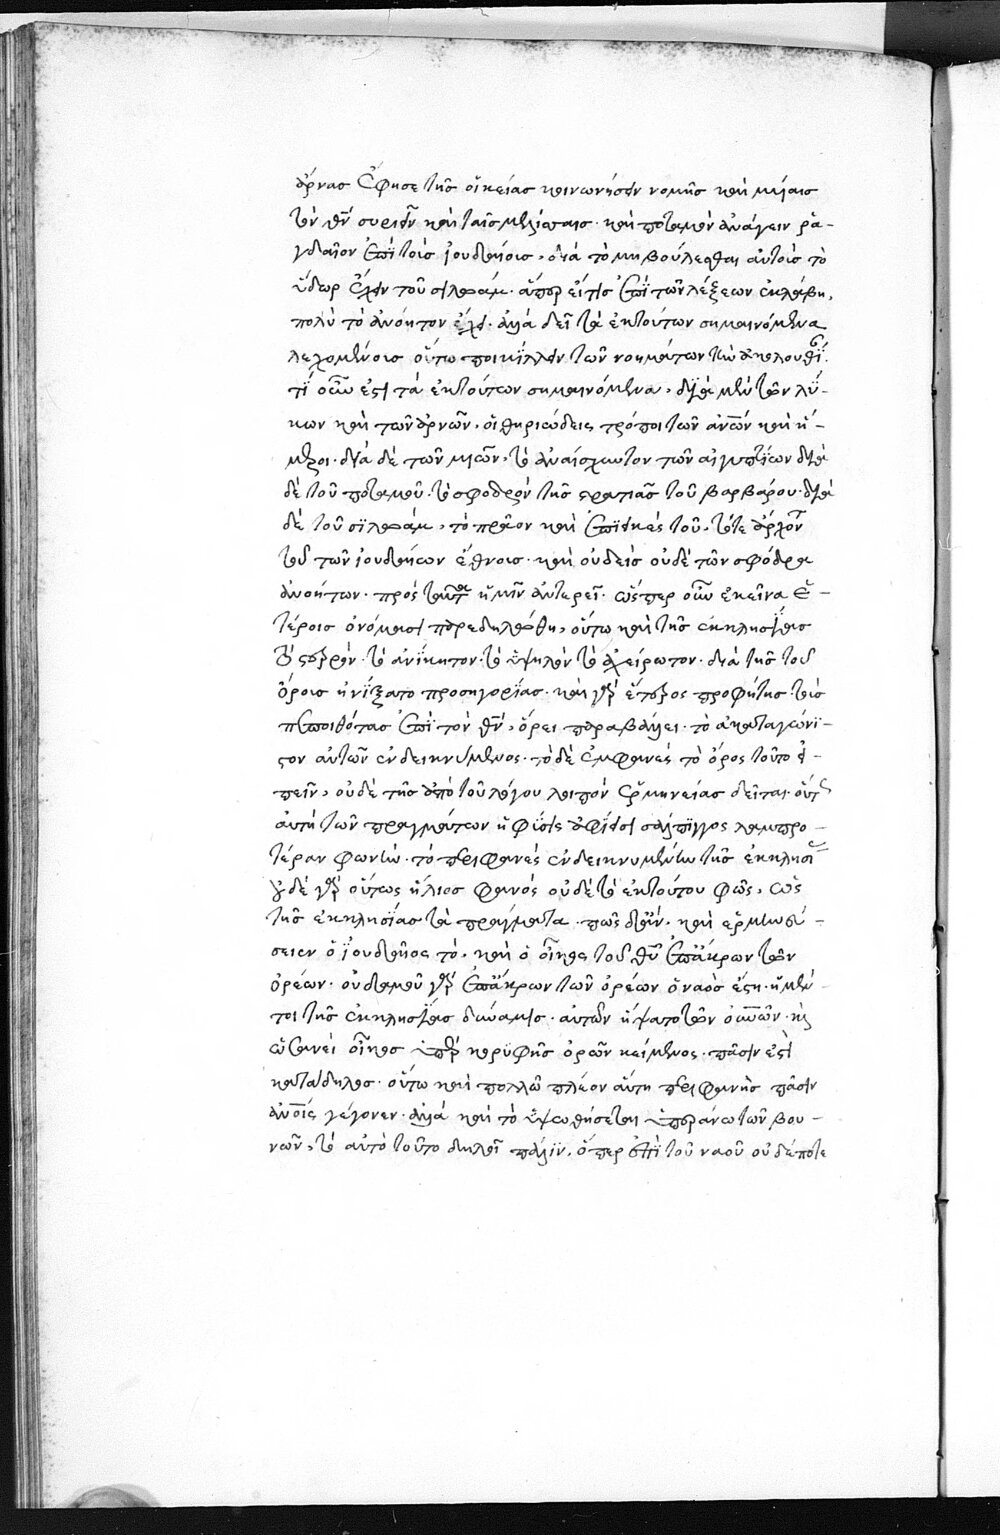 ἄρνας ἔφησε τῆς οἰκείας κοινωνήσειν νομῆς καὶ μυίαις
τὸν θν συριεῖν καὶ ταῖς μελίσσαις· καὶ ποταμὸν ἀνάγειν ρα-
γδαῖον ἐπὶ τοὺς ἰουδαίους, διὰ τὸ μὴ βούλεσθαι αὐτοὺς τὸ
ὕδωρ ἔχειν τοῦ σιλωάμ. ἅπερ εἴ τις ἐπὶ τῶν λέξεων ἐκλάβῃ,
πολὺ τὸ ἀνόητον ἔχει· ἀλλὰ δεῖ τὰ ἐκ τούτων σημαινόμενα
λεγομένοις οὕτω ποικίλλειν τῶν νοημάτων τὴν ἀκολουθί
τί οὖν ἐστι τὰ ἐκ τούτων σημαινόμενα, διὰ μὲν τῶν λύ-
κων καὶ τῶν ἀρνῶν, οἱ θηριώδεις τρόποι τῶν ἀνῶν καὶ ἥ-
μεροι· διὰ δὲ τῶν μυιῶν, τὸ ἀναίσχυντον τῶν αἰγυπτίων διὰ
δὲ τοῦ ποταμοῦ· τὸ σφοδρὸν τῆς στρατιᾶς τοῦ βαρβάρου· διὰ
δὲ τοῦ σιλωάμ, τὸ πρᾶον καὶ ἐπιεικὲς τοῦ, τότε ἄρχοντ
τοῦ τῶν ἰουδαίων ἔθνους· καὶ οὐδεὶς οὐδὲ τῶν σφόδρα
ἀνοήτων· πρὸς ταῦτα ἡμῖν ἀντερεῖ· ὥσπερ οὖν ἐκεῖνα ἑ-
τέροις ὀνόμασι παρεδηλώθη, οὕτω καὶ τῆς ἐκκλησίας
τὸ στερρὸν· τὸ ἀνίκητον· τὸ ὑψηλὸν τὸ ἀχείρωτον· διὰ τῆς τοῦ
ὄρους ἠνίξατο προσηγορίας· καὶ γὰρ ἕτερος προφήτης τοὺς
πεποιθότας ἐπὶ τὸν θν, ὄρει παραβάλλει· τὸ ἀκαταγώνι-
στον αὐτῶν ἐνδεικνύμενος· τὸ δὲ ἐμφανὲς τὸ ὄρος τοῦτο εἰ-
πεῖν, οὐδὲ τῆς ἀπὸ τοῦ λόγου λοιπὸν ἑρμηνείας δεῖται· οὕτ
αὐτὴ τῶν πραγμάτων ἡ φύσις ἀφίησι σάλπιγγος λαμπρο-
τέραν φωνὴν· τὸ περιφανὲς ἐνδεικνυμένην τῆς ἐκκλησί
οὐδὲ γὰρ οὕτως ἥλιος φανὸς οὐδὲ τὸ ἐκ τούτου φῶς, ὡς
τῆς ἐκκλησίας τὰ πράγματα· πῶς ἂν καὶ ἑρμηνεύ-
σειεν ὁ ἰουδαῖος τὸ, καὶ ὁ οἶκος τοῦ θυ ἐπ' ἄκρων τῶν
ὀρέων· οὐδαμοῦ γὰρ ἐπ' ἄκρων τῶν ὀρέων ὁ ναὸς ἔστη· ἡ μέν-
τοι τῆς ἐκκλησίας δύναμις· αὐτῶν ἥψατο τῶν οὐνῶν· καὶ
ὡσανεὶ οἶκος ὑπὲρ κορυφῆς ὀρῶν κείμενος· πᾶσιν ἐστὶ
κατάδηλος· οὕτω καὶ πολλῶ πλέον αὕτη περιφανὴς πᾶσιν
ἀνοις γέγονεν· ἀλλὰ καὶ τὸ ὑψωθήσεται ὑπεράνω τῶν βου-
νῶν, τὸ αὐτὸ τοῦτο δηλοῖ πάλιν, ὅπερ ἐπὶ τοῦ ναοῦ οὐδέποτε